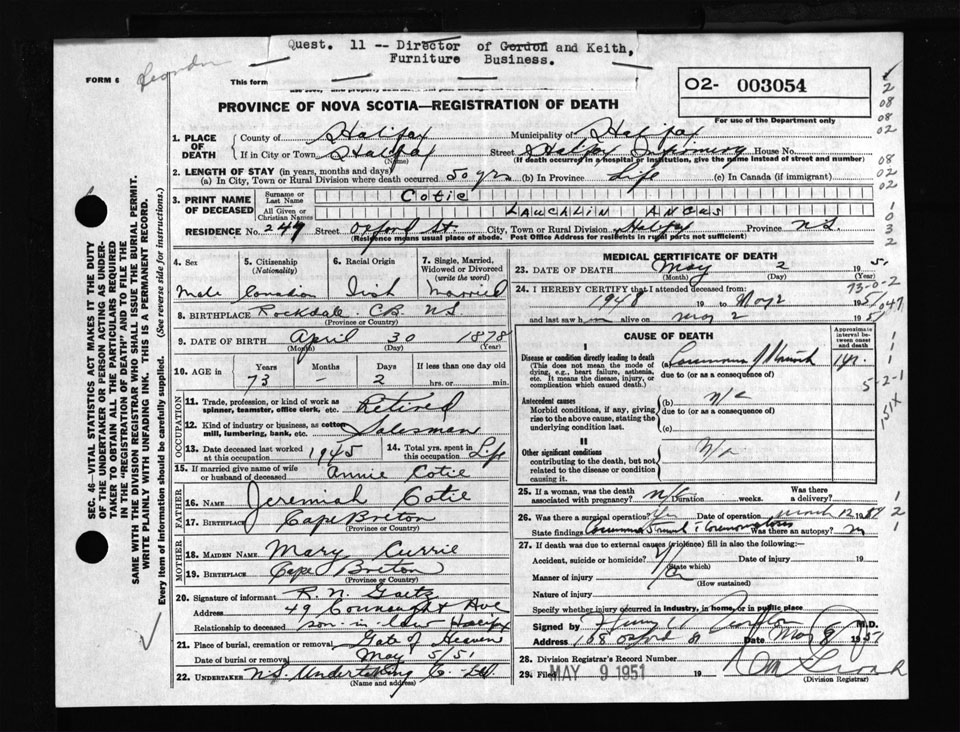 Quest. 11 -- Director of Gordon and Keith,
Furniture Business.
FORM 6
This form
O2- 003054
For use of the Department only
PROVINCE OF NOVA SCOTIA—REGISTRATION OF DEATH
1. PLACE OF DEATH
County of Halifax Municipality of Halifax
If in City or Town Halifax (Name) Street Halifax Infirmary House No.
(If death occurred in a hospital or institution, give the name instead of street and number)
2. LENGTH OF STAY (in years, months and days)
(a) In City, Town or Rural Division where death occurred 50 yrs (b) In Province Life (c) In Canada (if immigrant)
3. PRINT NAME OF DECEASED
Surname or Last Name Cotie
All Given or Christian Names LAUCHLIN ANGUS
RESIDENCE No. 249 Street Oxford St. City, Town or Rural Division Halifax Province N.S.
(Residence means usual place of abode. Post Office Address for residents in rural parts not sufficient)
4. Sex Male
5. Citizenship (Nationality) Canadian
6. Racial Origin Irish
7. Single, Married, Widowed or Divorced (write the word) Married
8. BIRTHPLACE Rockdale C.B. N.S.
(Province or Country)
9. DATE OF BIRTH April 30 1878
(Month) (Day) (Year)
10. AGE in Years 73 Months - Days 2 If less than one day old hrs. or min.
OCCUPATION
11. Trade, profession, or kind of work as spinner, teamster, office clerk, etc. Retired
12. Kind of industry or business, as cotton mill, lumbering, bank, etc. Salesman
13. Date deceased last worked at this occupation 1945
14. Total yrs. spent in this occupation Life
15. If married give name of wife or husband of deceased Annie Cotie
FATHER
16. NAME Jeremiah Cotie
17. BIRTHPLACE Cape Breton
(Province or Country)
MOTHER
18. MAIDEN NAME Mary Currie
19. BIRTHPLACE Cape Breton
(Province or Country)
20. Signature of informant R. N. Gaetz
Address 49 Connaught Ave
Relationship to deceased son-in-law Halifax
21. Place of burial, cremation or removal Gate of Heaven
Date of burial or removal May 5/51
22. UNDERTAKER N.S. Undertaking Co. Ltd.
(Name and address)
MEDICAL CERTIFICATE OF DEATH
23. DATE OF DEATH May 2 1951
(Month) (Day) (Year)
73-0-2
24. I HEREBY CERTIFY that I attended deceased from:
1948 19 to May 2 1951
and last saw him alive on May 2 1951
CAUSE OF DEATH
Approximate interval between onset and death
I
Disease or condition directly leading to death
(This does not mean the mode of dying, e.g., heart failure, asthenia, etc. It means the disease, injury, or complication which caused death.)
(a) Carcinoma of Stomach 1 yr.
due to (or as a consequence of)
Antecedent causes
Morbid conditions, if any, giving rise to the above cause, stating the underlying condition last.
(b) n/a
due to (or as a consequence of)
(c)
5-2-1
151X
II
Other significant conditions
contributing to the death, but not related to the disease or condition causing it.
N/a
25. If a woman, was the death associated with pregnancy? n/a Duration weeks. Was there a delivery?
26. Was there a surgical operation? Yes Date of operation March 12 19
State findings Carcinoma Stomach & Carcinomatosis Was there an autopsy? no
27. If death was due to external causes (violence) fill in also the following:
Accident, suicide or homicide? Date of injury 19
(State which)
Manner of injury
(How sustained)
Nature of injury
Specify whether injury occurred in Industry, in home, or in public place
Signed by M.D.
Address 108 Oxford St Date May 8 1951
28. Division Registrar's Record Number
29. Filed MAY 9 1951 19
(Division Registrar)
SEC. 46 - VITAL STATISTICS ACT MAKES IT THE DUTY
OF THE UNDERTAKER OR PERSON ACTING AS UNDER-
TAKER TO OBTAIN ALL THE PARTICULARS REQUIRED
IN THE "REGISTRATION OF DEATH" AND TO FILE THE
SAME WITH THE DIVISION REGISTRAR WHO SHALL ISSUE THE BURIAL PERMIT.
WRITE PLAINLY WITH UNFADING INK. THIS IS A PERMANENT RECORD.
Every item of information should be carefully supplied. (See reverse side for instructions.)